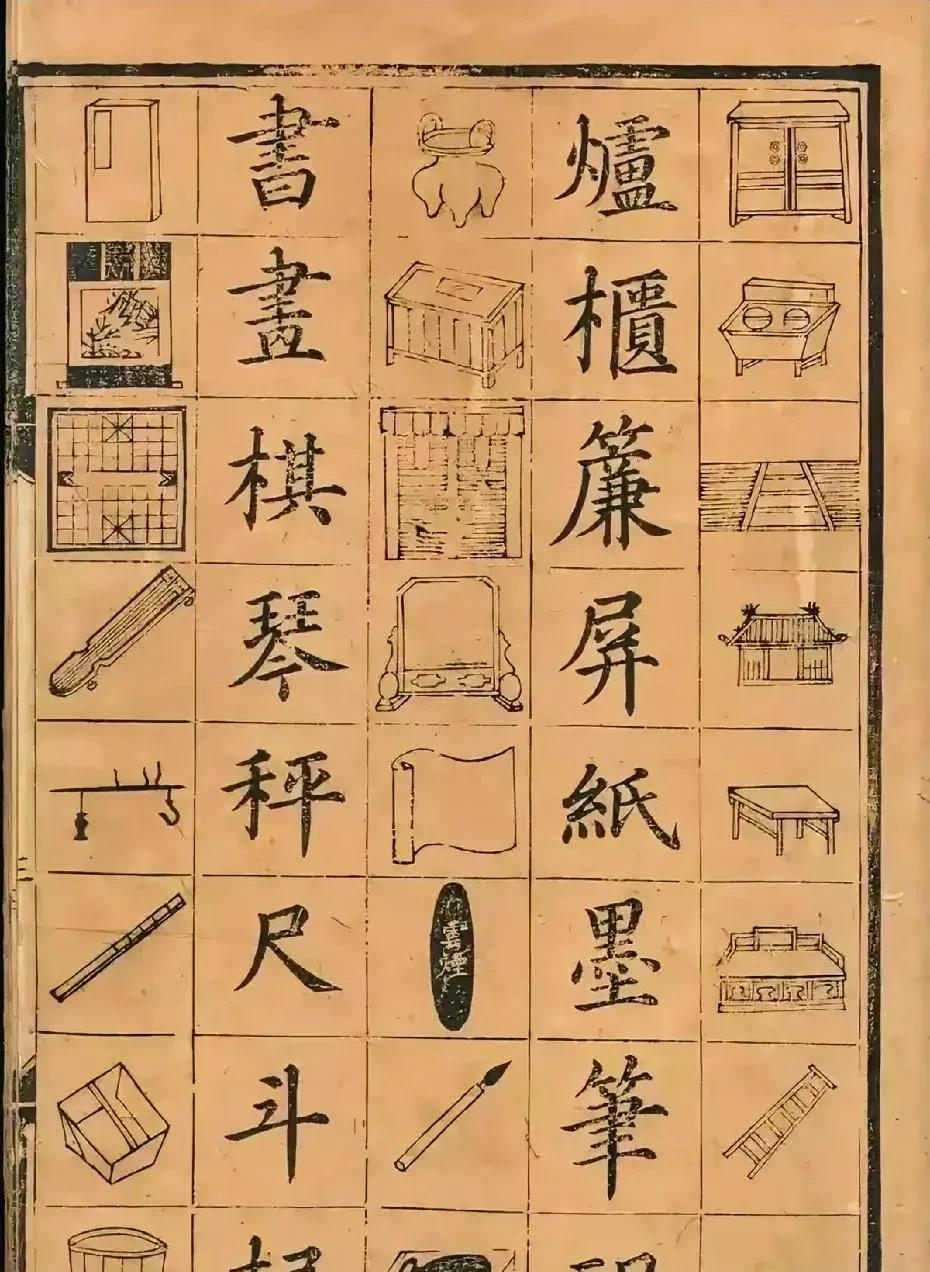 爐櫃簾屏紙墨筆
雲煙
書畫棋琴秤尺斗